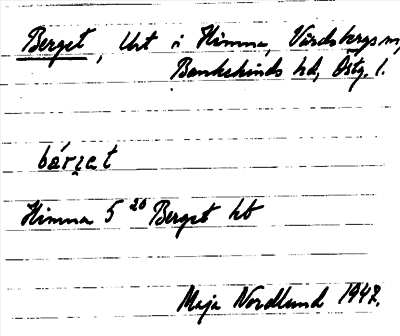 Berget, Urt i Himna, Vårdsbergs sn,
Bankekinds hd, Östg. l.
bárzat
Himna 5 26 Berget ht
Maja Nordlund 1947.